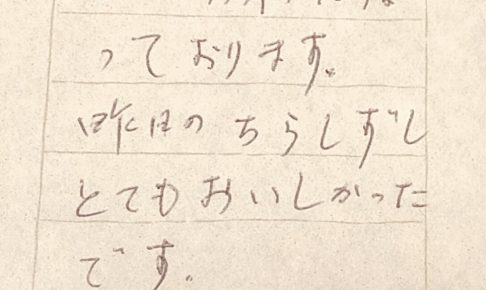 っております。
昨日のちらしずし
とてもおいしかった
です。